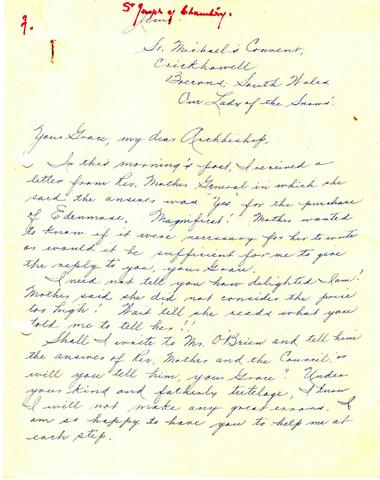 St Joseph of Chambéry.
2.
St. Michael's Convent,
Crickhowell
Brecond, South Wales
Our Lady of the Snows.
Your Grace, my dear Archbishop,
In this morning's post, I received a
letter from Rev. Mother General in which she
said the answer was 'Yes' for the purchase
of Edenmore. Magnificat! Mother wanted
to know if it were necessary for her to write
or would it be sufficient for me to give
the reply to you, your Grace.
I need not tell you how delighted I am!
Mother said she did not consider the price
too high! Wait till she reads what you
told me to tell her!!
Shall I write to Mr. O'Brien and tell him
the answer of Rev. Mother and the Council, or
will you tell him, your Grace? Under
your kind and fatherly tutelage, I know
I will not make any great errors. I
am so happy to have you to help me at
each step.